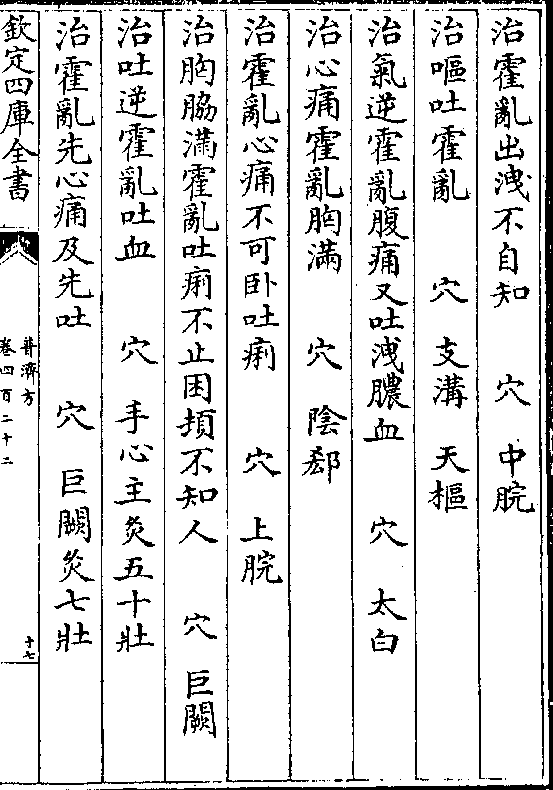 治霍亂出洩不自知　穴　中脘
治嘔吐霍亂　穴　支溝　天樞
治氣逆霍亂腹痛又吐洩膿血　穴　太白
治心痛霍亂胸滿　穴　陰郄
治霍亂心痛不可卧吐痢　穴　上脘
治胸脇滿霍亂吐痢不止困頓不知人　穴　巨闕
治吐逆霍亂吐血　穴　手心主灸五十壯
治霍亂先心痛及先吐　穴　巨闕灸七壯
欽定四庫全書
普濟方
卷四百二十二
十七